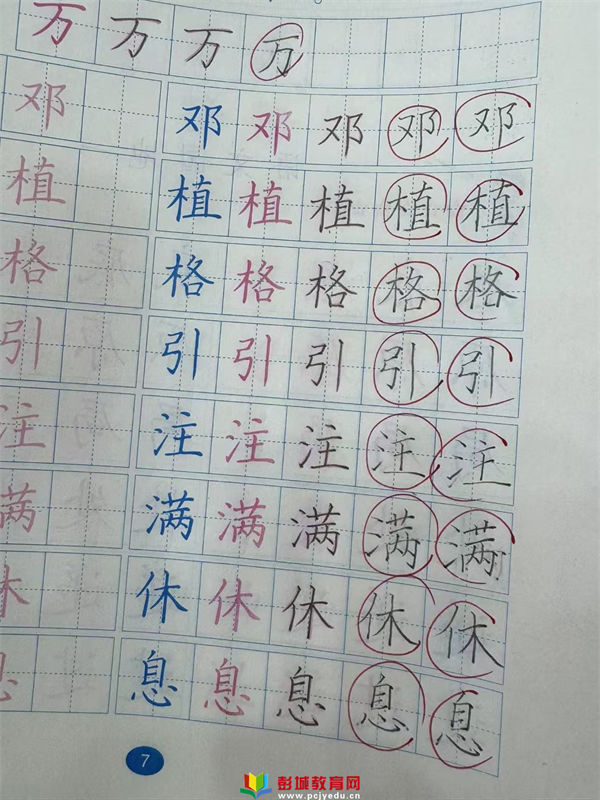 万 万 万 万
邓 邓 邓 邓 邓 邓
植 植 植 植 植 植
格 格 格 格 格 格
引 引 引 引 引 引
注 注 注 注 注 注
满 满 满 满 满 满
休 休 休 休 休 休
息 息 息 息 息
7
彭城教育网
www.pcjyedu.cn